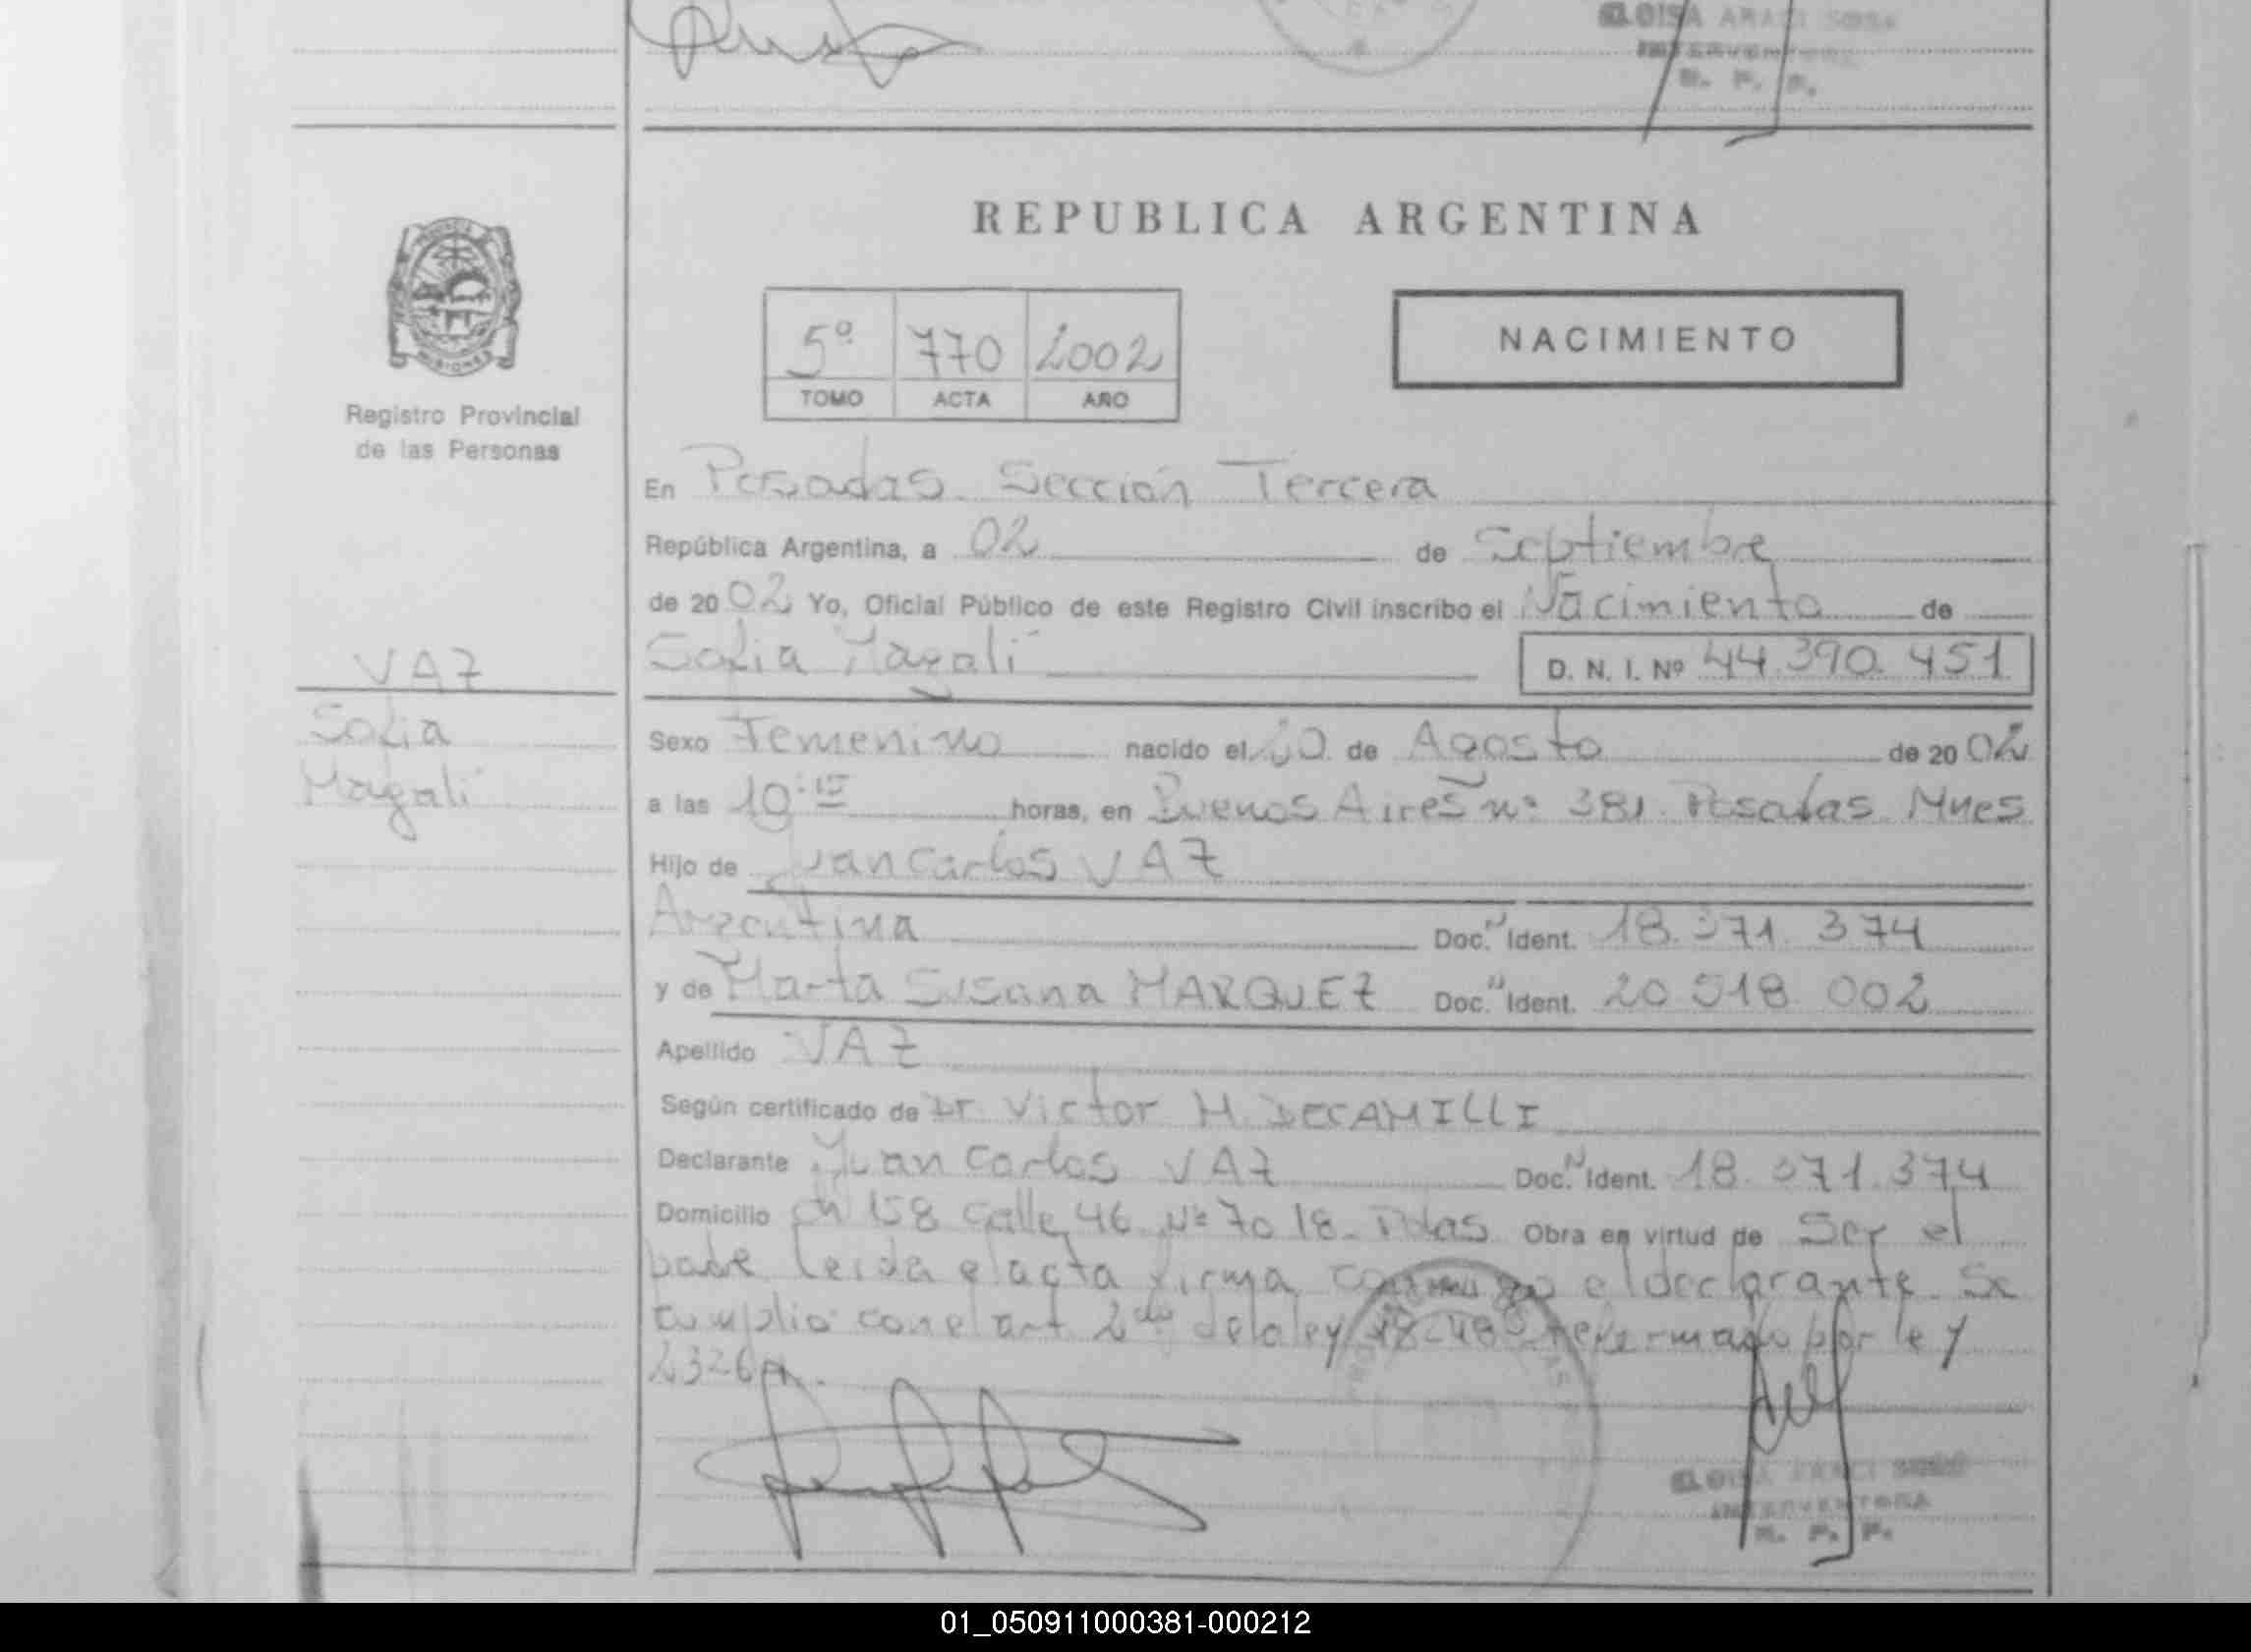 ELOISA ARACI SOSA
INTERVENTORA
R. P. P.
REPUBLICA ARGENTINA
PROVINCIA
MISIONES
5º 770 2002
TOMO ACTA AÑO
NACIMIENTO
Registro Provincial
de las Personas
En Posadas Sección Tercera
República Argentina, a 02 de Septiembre
de 2002 Yo, Oficial Público de este Registro Civil inscribo el Nacimiento de
Sofia Magalí D. N. I. Nº 44.390.451
VAZ
Sofia
Magalí
Sexo Femenino nacido el de Agosto de 2002
a las 10:15 horas, en Buenos Aires nº 381 Posadas Mnes
Hijo de Juan Carlos VAZ
Argentina Doc. Ident. 18.371.374
y de Marta Susana MARQUEZ Doc. Ident. 20.518.002
Apellido VAZ
Según certificado de Dr. Victor H. DECAMILLI
Declarante Juan Carlos VAZ Doc. Ident. 18.371.374
Domicilio Ch 158 Calle 46 Nº 7018. Pdas Obra en virtud de Ser el
padre leida el acta firma conmigo el declarante. Se
cumplio con el art 2do de la ley por ley
ELOISA ARACI SOSA
INTERVENTORA
R. P. P.
01_050911000381-000212